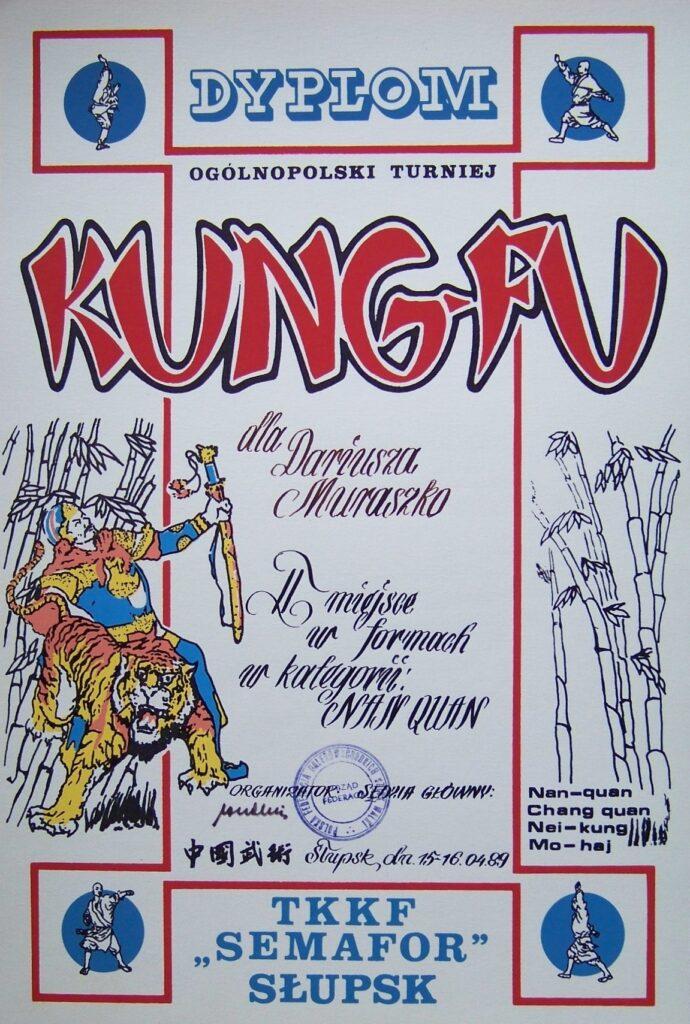 DYPLOM
OGÓLNOPOLSKI TURNIEJ
KUNG-FU
dla Dariusza
Muraszko
II miejsce
w formach
w kategorii:
NAN QUAN
ORGANIZATOR: SĘDZIA GŁÓWNY:
中國武術 Słupsk, dn. 15-16.04.89
Nan-quan
Chang quan
Nei-kung
Mo-haj
TKKF
„SEMAFOR”
SŁUPSK